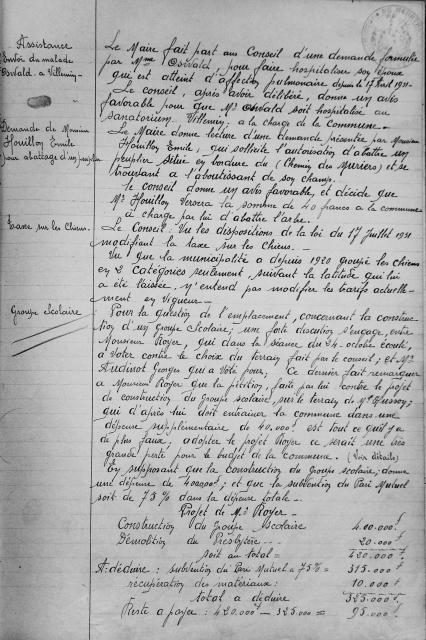 Assistance
Envoi du malade
Oswald à Villemin
Demande de Monsieur
Houillon Emile
pour abattage d'un peuplier
Taxe sur les Chiens.
Groupe Scolaire
Le Maire fait part au Conseil d'une demande formulée
par Mme Oswald, pour faire hospitaliser son Epoux
qui est atteint d'affection pulmonaire depuis le 17 Avril 1931.
Le conseil, après avoir délibéré, donne un avis
favorable pour que Mr Oswald soit hospitalisé au
sanatorium Villemin, à la charge de la Commune.
Le Maire donne lecture d'une demande présentée par Monsieur
Houillon Emile, qui sollicite l'autorisation d'abattre un
peuplier situé en bordure du (Chemin des Muriers) et se
trouvant à l'aboutissant de son champ.
Le conseil donne un avis favorable, et décide que
Mr Houillon versera la somme de 40 francs à la commune
à charge par lui d'abattre l'arbre.
Le Conseil: Vu les dispositions de la loi du 17 Juillet 1931
modifiant la taxe sur les chiens.
Vu que la municipalité a depuis 1920 groupé les chiens
en 2 catégories seulement, suivant la latitude qui lui
a été laissée, n'entend pas modifier les tarifs actuelle-
ment en vigueur.
Pour la question de l'emplacement, concernant la construc-
tion d'un groupe Scolaire; une forte discution s'engage, entre
Monsieur Royer, qui dans la séance du 24 octobre
à voter contre le choix du terrain fait par le conseil; et Mr
Audinot Georges qui a Voté pour; Ce dernier fait remarquer
à Monsieur Royer que la pétition, faite par lui contre le projet
de construction du Groupe scolaire, sur le terrain de Mr
qui d'après lui doit entrainer la commune dans une
dépense supplimentaire de 40.000f est tout ce qu'il y a
de plus faux; adopter le projet Royer ce serait une très
grande perte pour le budjet de la commune. (Voir détails)
En supposant que la construction du Groupe scolaire, donne
une dépense de 400000f; et que la subvention du Pari Mutuel
soit de 75% dans la dépense totale.
Projet de Mr Royer
Construction du Groupe scolaire 400.000f
Démolition du Presbytère 20.000f
soit au total = 420.000f
A déduire: subvention du Pari Mutuel à 75% = 315.000f
récupération des matériaux: 10.000f
total à déduire 325.000f
Reste à payer: 420.000f - 325.000 = 95.000f